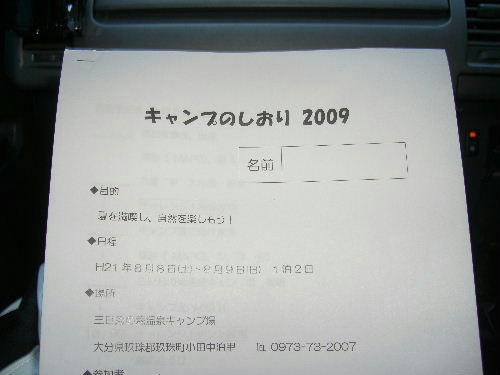 キャンプのしおり 2009
名前
◆目的
夏を満喫し、自然を楽しもう!
◆日程
H21年8月8日(土)~8月9日(日) 1泊2日
◆場所
温泉キャンプ場
大分県玖珠郡玖珠町小田中泊里 ℡ 0973-73-2007
◆参加者